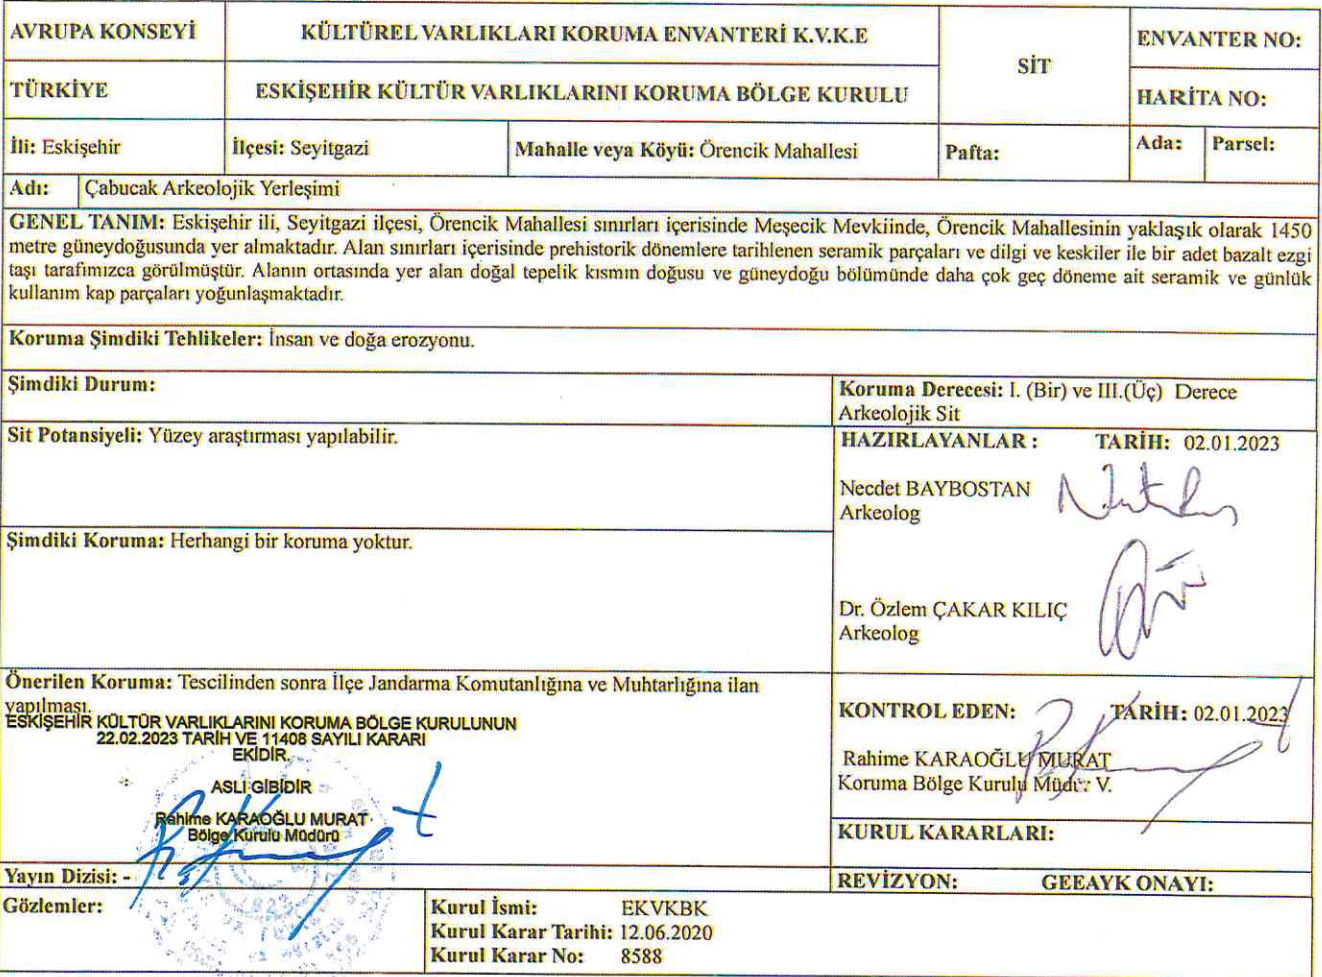 AVRUPA KONSEYİ
KÜLTÜREL VARLIKLARI KORUMA ENVANTERİ K.V.K.E
SİT
ENVANTER NO:
TÜRKİYE
ESKİŞEHİR KÜLTÜR VARLIKLARINI KORUMA BÖLGE KURULU
HARİTA NO:
İli: Eskişehir
İlçesi: Seyitgazi
Mahalle veya Köyü: Örencik Mahallesi
Pafta:
Ada:
Parsel:
Adı: Çabucak Arkeolojik Yerleşimi
GENEL TANIM: Eskişehir ili, Seyitgazi ilçesi, Örencik Mahallesi sınırları içerisinde Meşecik Mevkiinde, Örencik Mahallesinin yaklaşık olarak 1450
metre güneydoğusunda yer almaktadır. Alan sınırları içerisinde prehistorik dönemlere tarihlenen seramik parçaları ve dilgi ve keskiler ile bir adet bazalt ezgi
taşı tarafımızca görülmüştür. Alanın ortasında yer alan doğal tepelik kısmın doğusu ve güneydoğu bölümünde daha çok geç döneme ait seramik ve günlük
kullanım kap parçaları yoğunlaşmaktadır.
Koruma Şimdiki Tehlikeler: İnsan ve doğa erozyonu.
Şimdiki Durum:
Koruma Derecesi: I. (Bir) ve III.(Üç) Derece
Arkeolojik Sit
Sit Potansiyeli: Yüzey araştırması yapılabilir.
HAZIRLAYANLAR : TARİH: 02.01.2023
Necdet BAYBOSTAN
Arkeolog
Şimdiki Koruma: Herhangi bir koruma yoktur.
Dr. Özlem ÇAKAR KILIÇ
Arkeolog
Önerilen Koruma: Tescilinden sonra İlçe Jandarma Komutanlığına ve Muhtarlığına ilan
yapılması.
ESKİŞEHİR KÜLTÜR VARLIKLARINI KORUMA BÖLGE KURULUNUN
22.02.2023 TARİH VE 11408 SAYILI KARARI
EKİDİR.
ASLI GİBİDİR
Rahime KARAOĞLU MURAT
Bölge Kurulu Müdürü
KONTROL EDEN: TARİH: 02.01.2023
Rahime KARAOĞLU MURAT
Koruma Bölge Kurulu Müdür V.
KURUL KARARLARI:
Yayın Dizisi: -
REVİZYON: GEEAYK ONAYI:
Gözlemler:
Kurul İsmi: EKVKBK
Kurul Karar Tarihi: 12.06.2020
Kurul Karar No: 8588